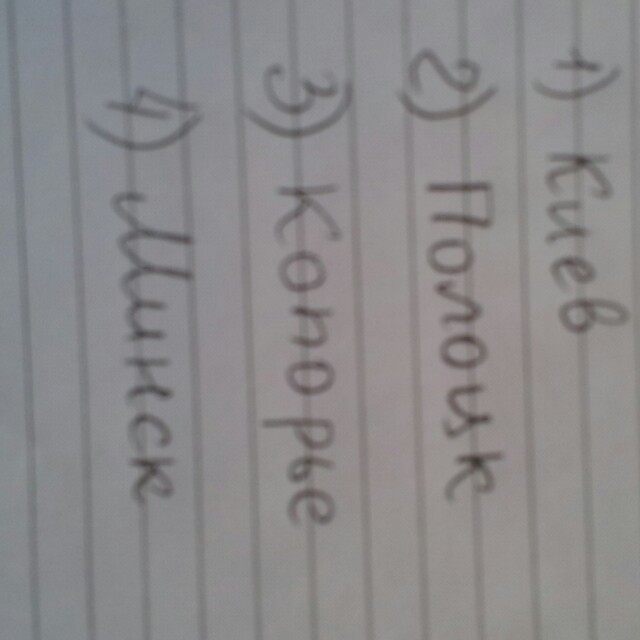 1) Киев
2) Полоцк
3) Копорье
4) Минск